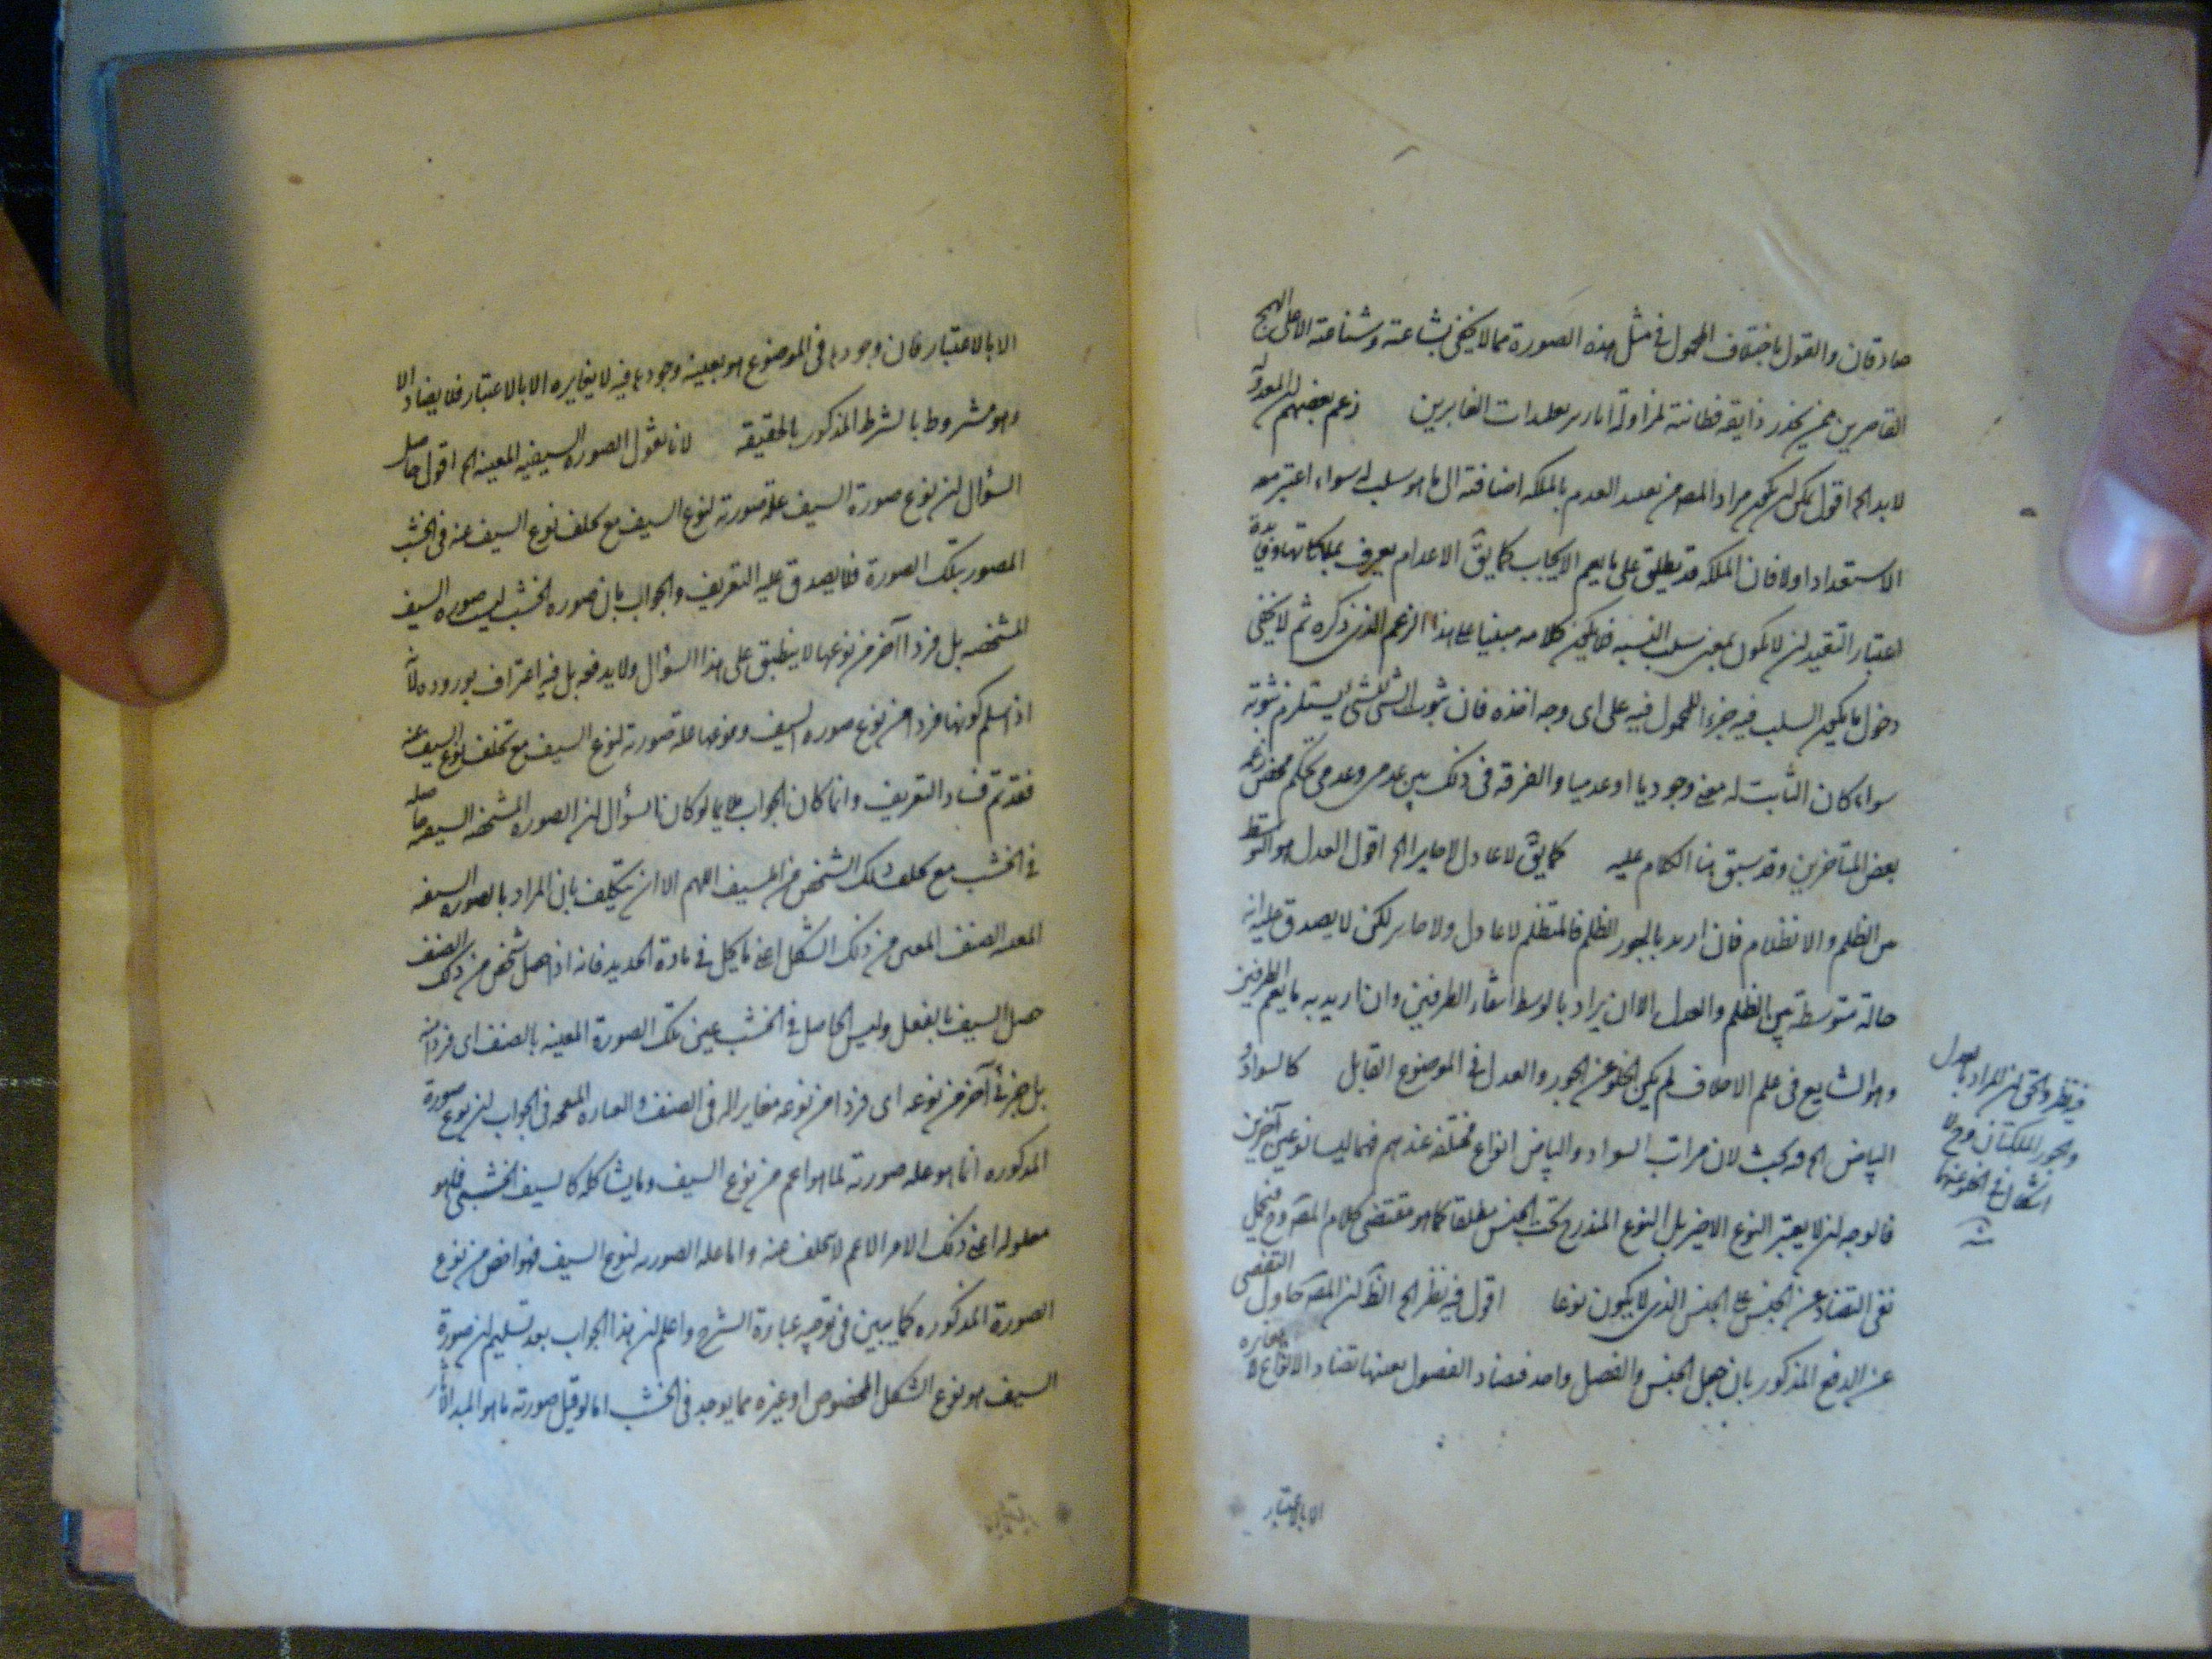 صادقان والقول باختلاف المحمول فى مثل هذه الصورة مما لا يخفى بشاعته وشناعته الا على الهمج
القاصرين زعم بعضهم ان المعدولة
لا بد الخ اقول يمكن ان يكون مراد المص من تقييد العدم بالملكه اضافته الى ما هو سلب له سواء اعتبر معه
الاستعداد اولا فان الملكه قد يطلق على ما يعم الايجاب كما يق الاعدام يعرف بملكاتها وفايدة
اعتبار التقييد ان لا يكون بمعنى سلب النسبه فلا يكون كلامه مبنيا على هذا الزعم الذى ذكره ثم لا يخفى
دخول ما يكون السلب فيه جزءا للمحمول فيه على اى وجه اخذه فان ثبوت الشئ للشئ يستلزم ثبوته
سواء كان الثابت له معنى وجوديا او عدميا والفرقة فى ذلك بين عدمى وعدمى تحكم محض زعمه
بعض المتاخرين وقد سبق منا الكلام عليه كما يق لا عادل لا جاير الخ اقول العدل هو التوسط
بين الظلم والانظلام فان اريد بالجور الظلم فالمنظلم لا عادل ولا جاير لكن لا يصدق عليه انه
حالة متوسطة بين الظلم والعدل الا ان يراد بالوسط انتفاء الطرفين وان اريد به ما يعم الطرفين
وهو الشايع فى علم الاخلاق لم يكن الخلو عن الجور والعدل فى الموضوع القابل كالسواد و
البياض الخ فيه بحث لان مراتب السواد والبياض انواع مختلفة عندهم فهما ليسا نوعين آخرين
فالوجه ان لا يعتبر النوع الاخير بل النوع المندرج تحت الجنس مطلقا كما هو مقتضى كلام المص وح فيحمل
نفى التضاد عن الجنس على الجنس الذى لا يكون نوعا اقول فيه نظر الخ الظ ان المص حاول التفصى
عن الدفع المذكور بان جعل الجنس والفصل واحد فتضاد الفصول بعينها تضاد الانواع لا مغايرة
فيه نظر والحق ان المراد بالعدل
والجور الملكتان وح لا
اشكال فى الخلو عنهما
الا بالاعتبار
الا بالاعتبار فان وجوده فى الموضوع هو بعينه وجودها فيه لا يغايره الا بالاعتبار فلا يضاد الا
وهو مشروط بالشرط المذكور بالحقيقه لانا نقول الصوره السيفيه المعينه الخ اقول حاصل
السؤال ان نوع صورة السيف علة صورته لنوع السيف مع تخلف نوع السيف عنه فى الخشب
المصور بتلك الصورة فلا يصدق عليه التعريف والجواب بان صوره الخشب ليس صوره السيف
المشخصه بل فردا آخر من نوعها لا ينطبق على هذا السؤال ولا يدفعه بل فيه اعتراف بوروده لانه
اذا سلم كونها فردا من نوع صوره السيف ونوعها علة صورته لنوع السيف مع تخلف نوع السيف عنه
فقد تم فساد التعريف وانما كان الجواب ملايما لو كان السؤال ان الصوره المشخصه السيفيه حاصله
فى الخشب مع تخلف ذلك الشخص من السيف اللهم الا ان يتكلف بان المراد بالصوره السيفيه
المعينه الصنف المعين من ذلك الشكل اعنى ما يحل فى مادة الحديد فانه اذا حصل شخص من ذلك الصنف
حصل السيف بالفعل وليس الحاصل فى الخشب عين تلك الصورة المعينه بالصنف اى فردا منه
بل جزئى آخر من نوعه اى فردا من نوعه مغاير اله فى الصنف والعباره الصحيحه فى الجواب ان نوع صورة
المذكوره انما هو علة صورته لما هو اعم من نوع السيف وما يشاكله كالسيف الخشبى فلهو
معلوله اعنى ذلك الامر الاعم لا يتخلف عنه واما علة الصوريه لنوع السيف فهو اخص من نوع
الصورة المذكوره كما يبين فى توجيه عبارة الشرح واعلم ان هذا الجواب بعد تسليم ان صورة
السيف هو نوع الشكل المخصوص او غيره مما يوجد فى الخشب اما لو قيل صورته ما هو المبدا لاثار